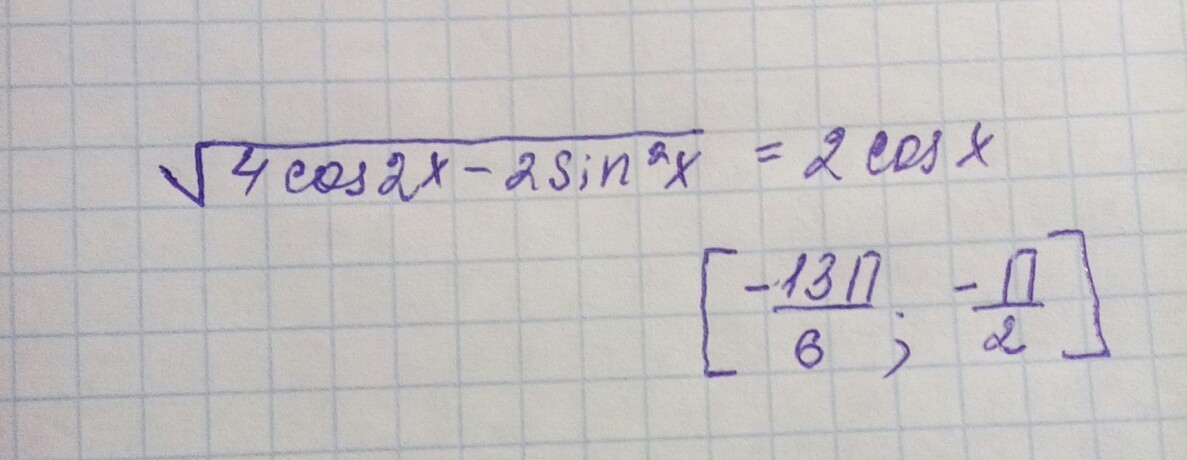 √(4 cos 2x - 2 sin²x) = 2 cos x
[-13П/6; -П/2]